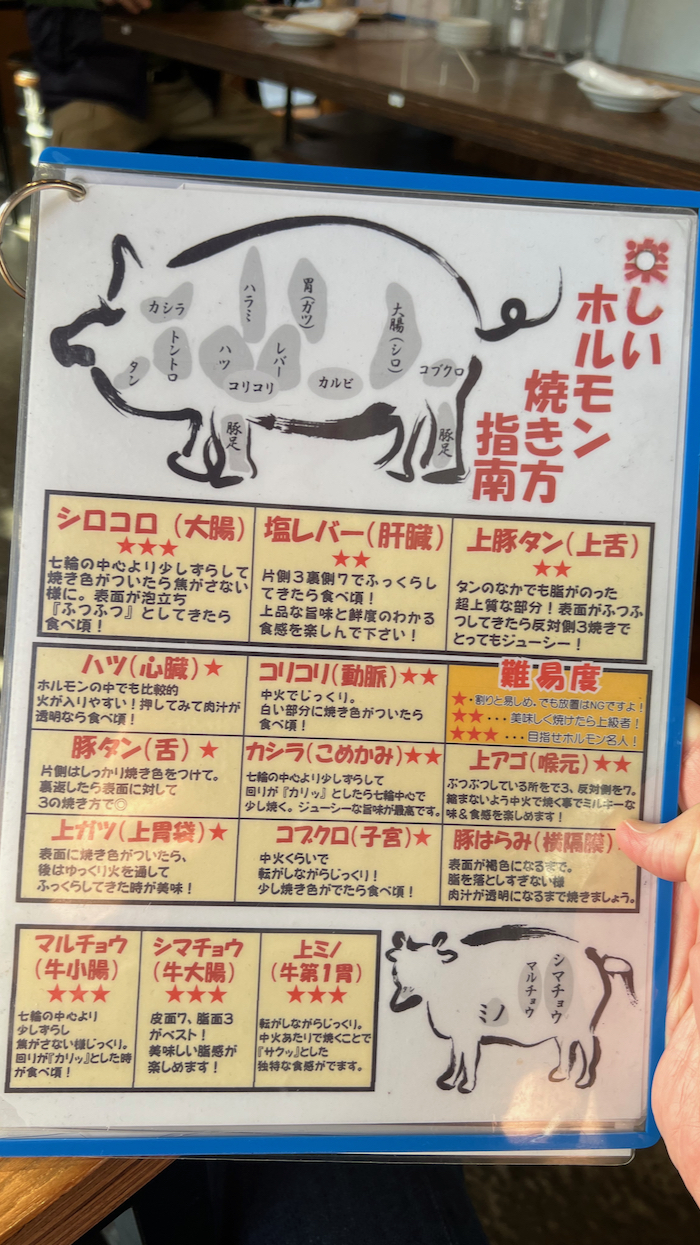 楽しい
ホルモン
焼き方
指南
カシラ
ハラミ
胃(ガツ)
大腸(シロ)
タン
トントロ
ハツ
レバー
コリコリ
カルビ
コブクロ
豚足
豚足
シロコロ(大腸)
★★★
七輪の中心より少しずらして
焼き色がついたら焦がさない
様に。表面が泡立ち
『ふつふつ』としてきたら
食べ頃！
塩レバー(肝臓)
★★
片側3裏側7でふっくらし
てきたら食べ頃！
上品な旨味と鮮度のわかる
食感を楽しんで下さい！
上豚タン(上舌)
★★
タンのなかでも脂がのった
超上質な部分！表面がふつふ
つしてきたら反対側3焼きで
とってもジューシー！
ハツ(心臓)★
ホルモンの中でも比較的
火が入りやすい！押してみて肉汁が
透明なら食べ頃！
コリコリ(動脈)★★
中火でじっくり。
白い部分に焼き色がついたら
食べ頃！
難易度
★・割りと易しめ。でも放置はNGですよ！
★★・・・美味しく焼けたら上級者！
★★★・・・目指せホルモン名人！
豚タン(舌)★
片側はしっかり焼き色をつけて。
裏返したら表面に対して
3の焼き方で◎
カシラ(こめかみ)★★
七輪の中心より少しずらして
回りが『カリッ』としたら七輪中心で
少し焼く。ジューシーな旨味が最高です。
上アゴ(喉元)★★
ぶつぶつしている所をで3、反対側を7。
縮まないよう中火で焼く事でミルキーな
味&食感を楽しめます！
上ガツ(上胃袋)★
表面に焼き色がついたら、
後はゆっくり火を通して
ふっくらしてきた時が美味！
コブクロ(子宮)★
中火くらいで
転がしながらじっくり！
少し焼き色がでたら食べ頃！
豚はらみ(横隔膜)
表面が褐色になるまで。
脂を落としすぎない様
肉汁が透明になるまで焼きましょう。
マルチョウ
(牛小腸)
★★★
七輪の中心より
少しずらし
焦がさない様じっくり。
回りが『カリッ』とした時
が食べ頃！
シマチョウ
(牛大腸)
★★★
皮面7、脂面3
がベスト！
美味しい脂感が
楽しめます！
上ミノ
(牛第1胃)
★★★
転がしながらじっくり。
中火あたりで焼くことで
『サクッ』とした
独特な食感がでます。
シマチョウ
マルチョウ
ミノ